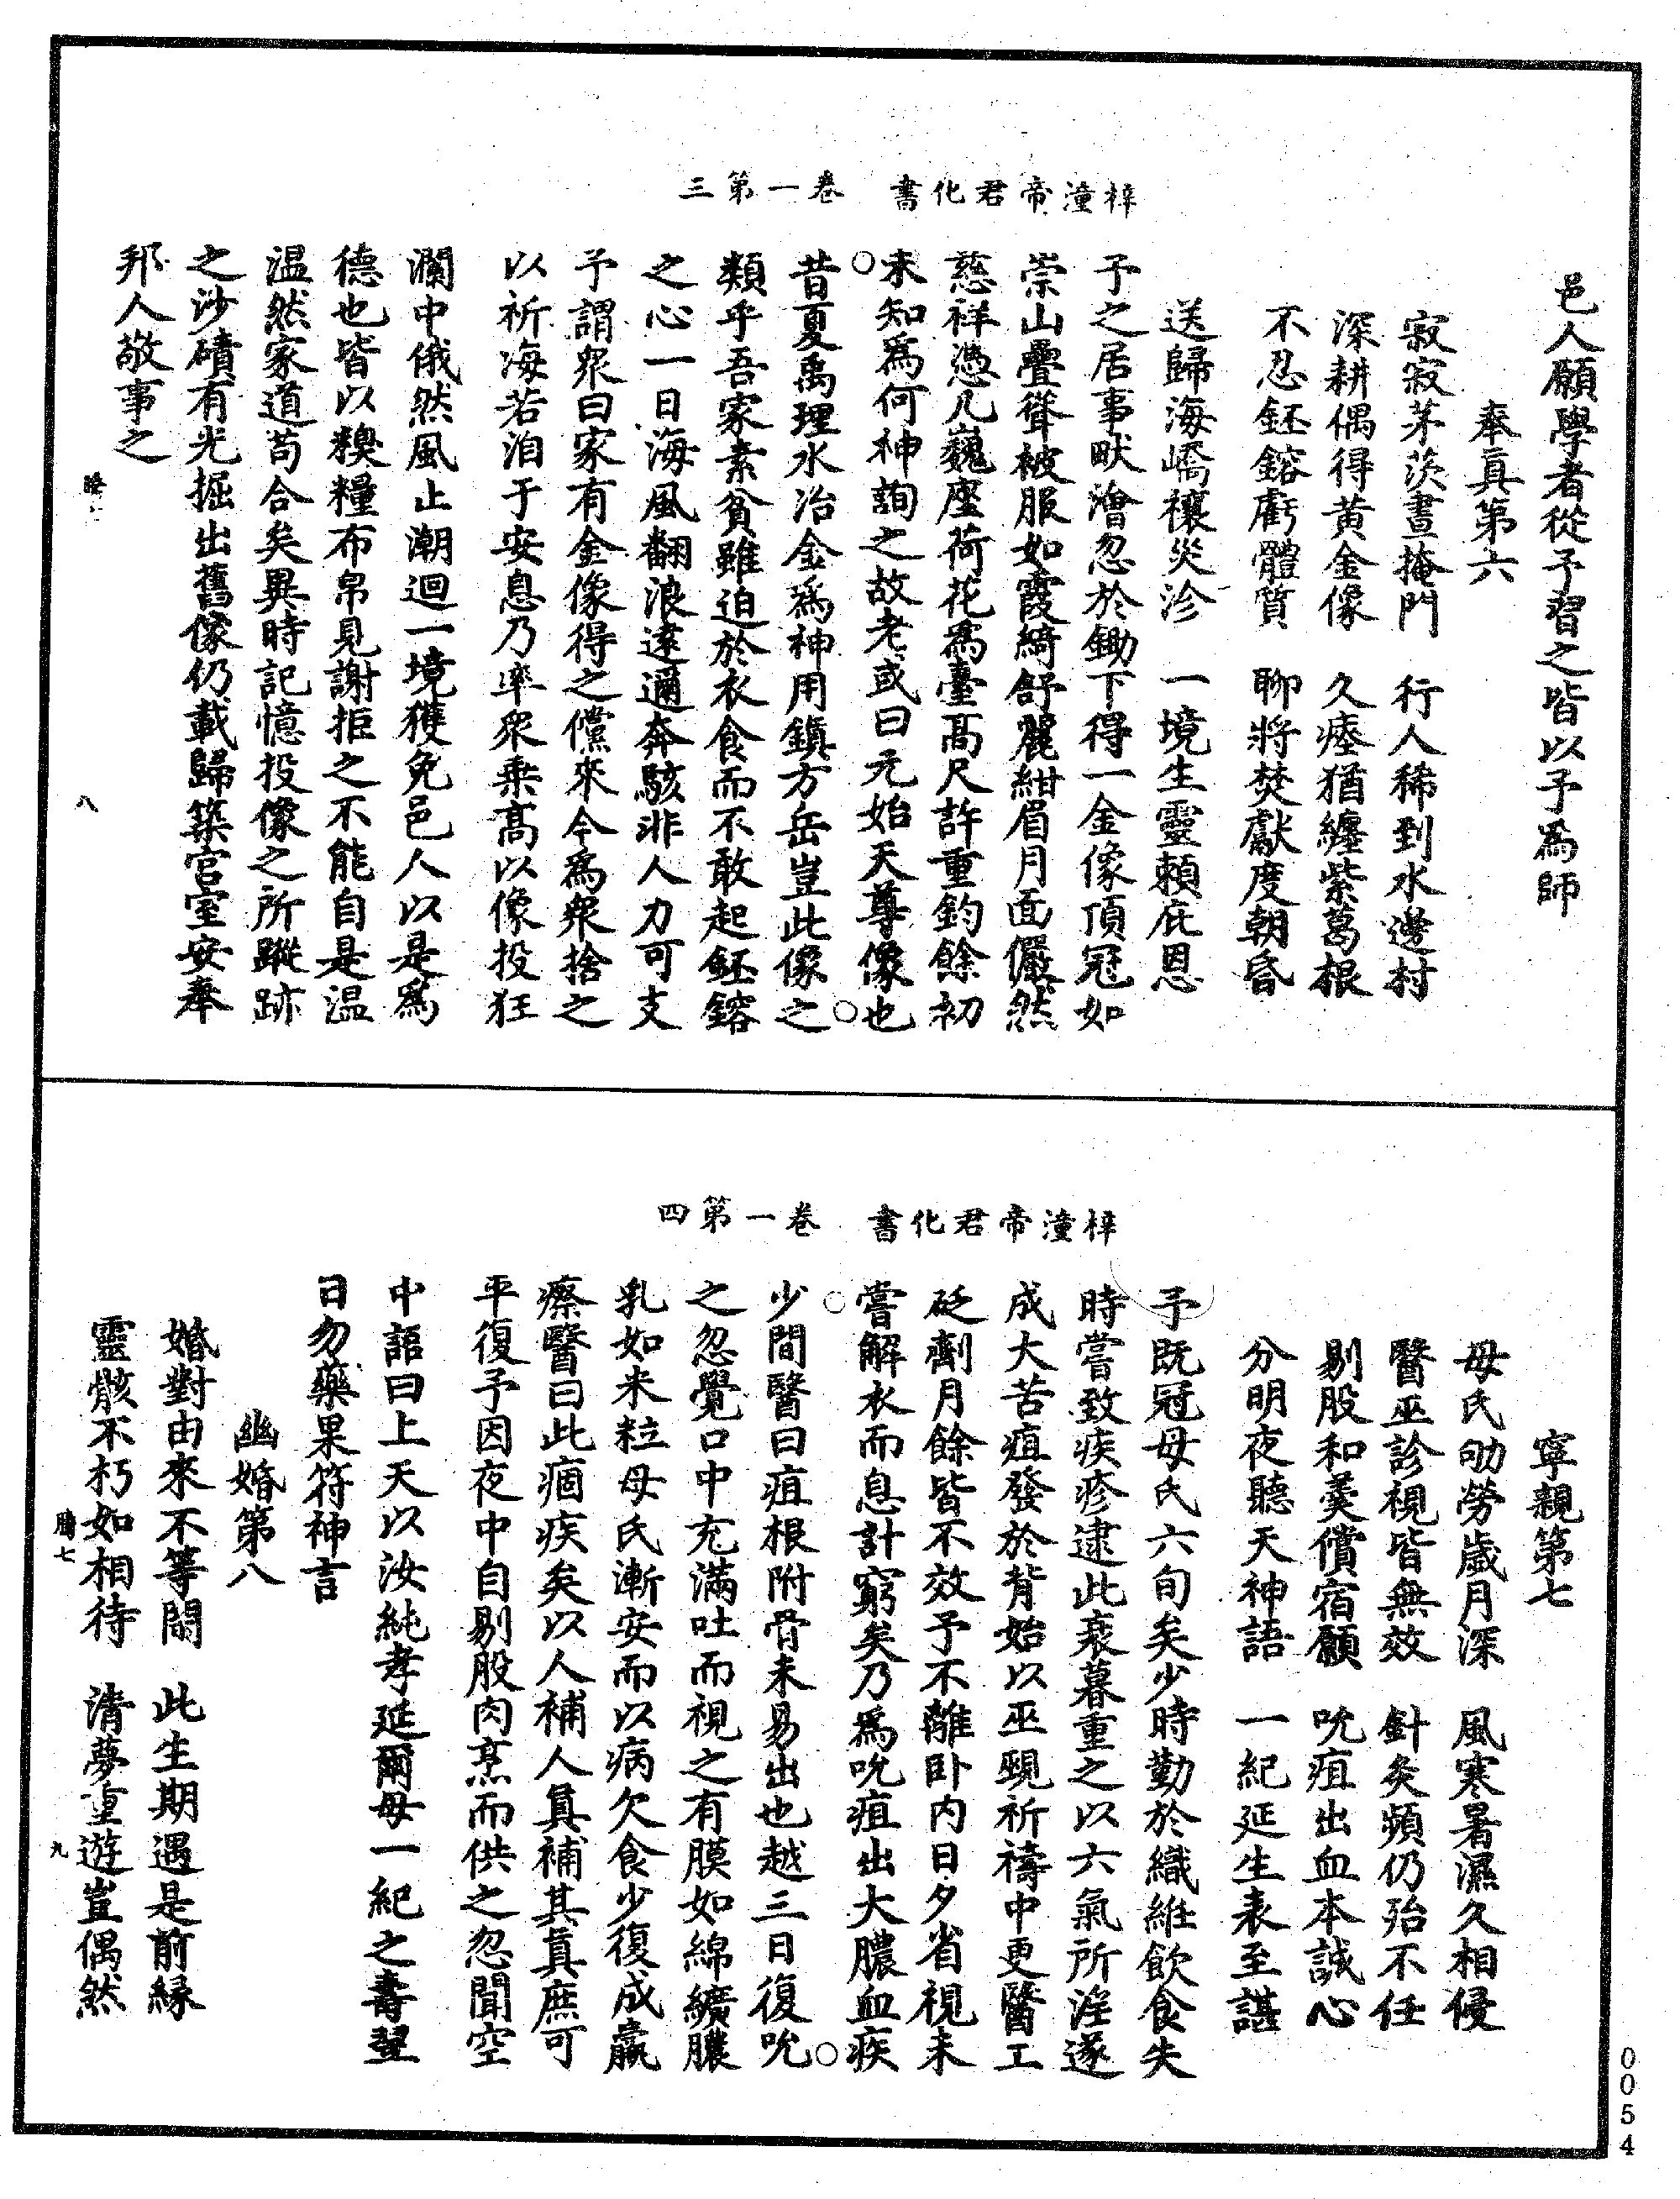 梓潼帝君化書　卷一第三
邑人願學者從予習之皆以予爲師
奉真第六
寂寂茅茨晝掩門　行人稀到水邊村
深耕偶得黄金像　久瘞猶纏紫葛根
不忍鉟鎔虧體質　聊將焚獻度朝昏
送歸海嶠禳災沴　一境生靈頼庇恩
予之居事畎澮忽於鋤下得一金像頂冠如
崇山疊聳被服如霞綺舒麗紺眉月面儼然
慈祥憑几巍座荷花爲臺高尺許重鈞餘初
未知爲何神詢之故老或曰元始天尊像也
昔夏禹理水冶金爲神用鎮方岳豈此像之
類乎吾家素貧雖迫於衣食而不敢起鉟鎔
之心一日海風翻浪遠邇奔駭非人力可支
予謂衆曰家有金像得之儻來今爲衆捨之
以祈海若洎于安息乃率衆乗高以像投狂
瀾中俄然風止潮迴一境獲免邑人以是爲
德也皆以糗糧布帛見謝拒之不能自是温
温然家道苟合矣異時記憶投像之所蹤跡
之沙磧有光掘出舊像仍載歸築宫室安奉
邦人敬事之
八
梓潼帝君化書　卷一第四
寧親第七
母氏劬勞歲月深　風寒暑濕久相侵
醫巫診視皆無效　針灸頻仍殆不任
剔股和羹償宿願　吮疽出血本誠心
分明夜聽天神語　一紀延生表至諶
予既冠母氏六旬矣少時勤於織維飲食失
時嘗致疾疹逮此衰暮重之以六氣所淫遂
成大苦疽發於背始以巫覡祈禱中更醫工
砭劑月餘皆不效予不離卧内日夕省視未
嘗解衣而息計窮矣乃爲吮疽出大膿血疾
少間醫曰疽根附骨未易出也越三日復吮
之忽覺口中充滿吐而視之有膜如綿纊膿
乳如米粒母氏漸安而以病欠食少復成羸
瘵醫曰此痼疾矣以人補人真補其真庶可
平復予因夜中自剔股肉烹而供之忽聞空
中語曰上天以汝純孝延爾母一紀之壽翌
日勿藥果符神言
幽婚第八
婚對由來不等閑　此生期遇是前緣
靈骸不朽如相待　清夢重遊豈偶然
七
九
0054